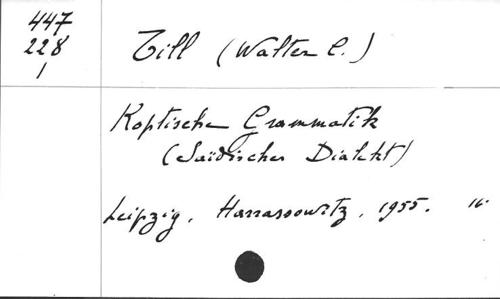 447
228
1
Till (Walter C.)
Koptische Grammatik
(Saïdischer Dialekt)
Leipzig, Harrassowitz, 1955. 16.